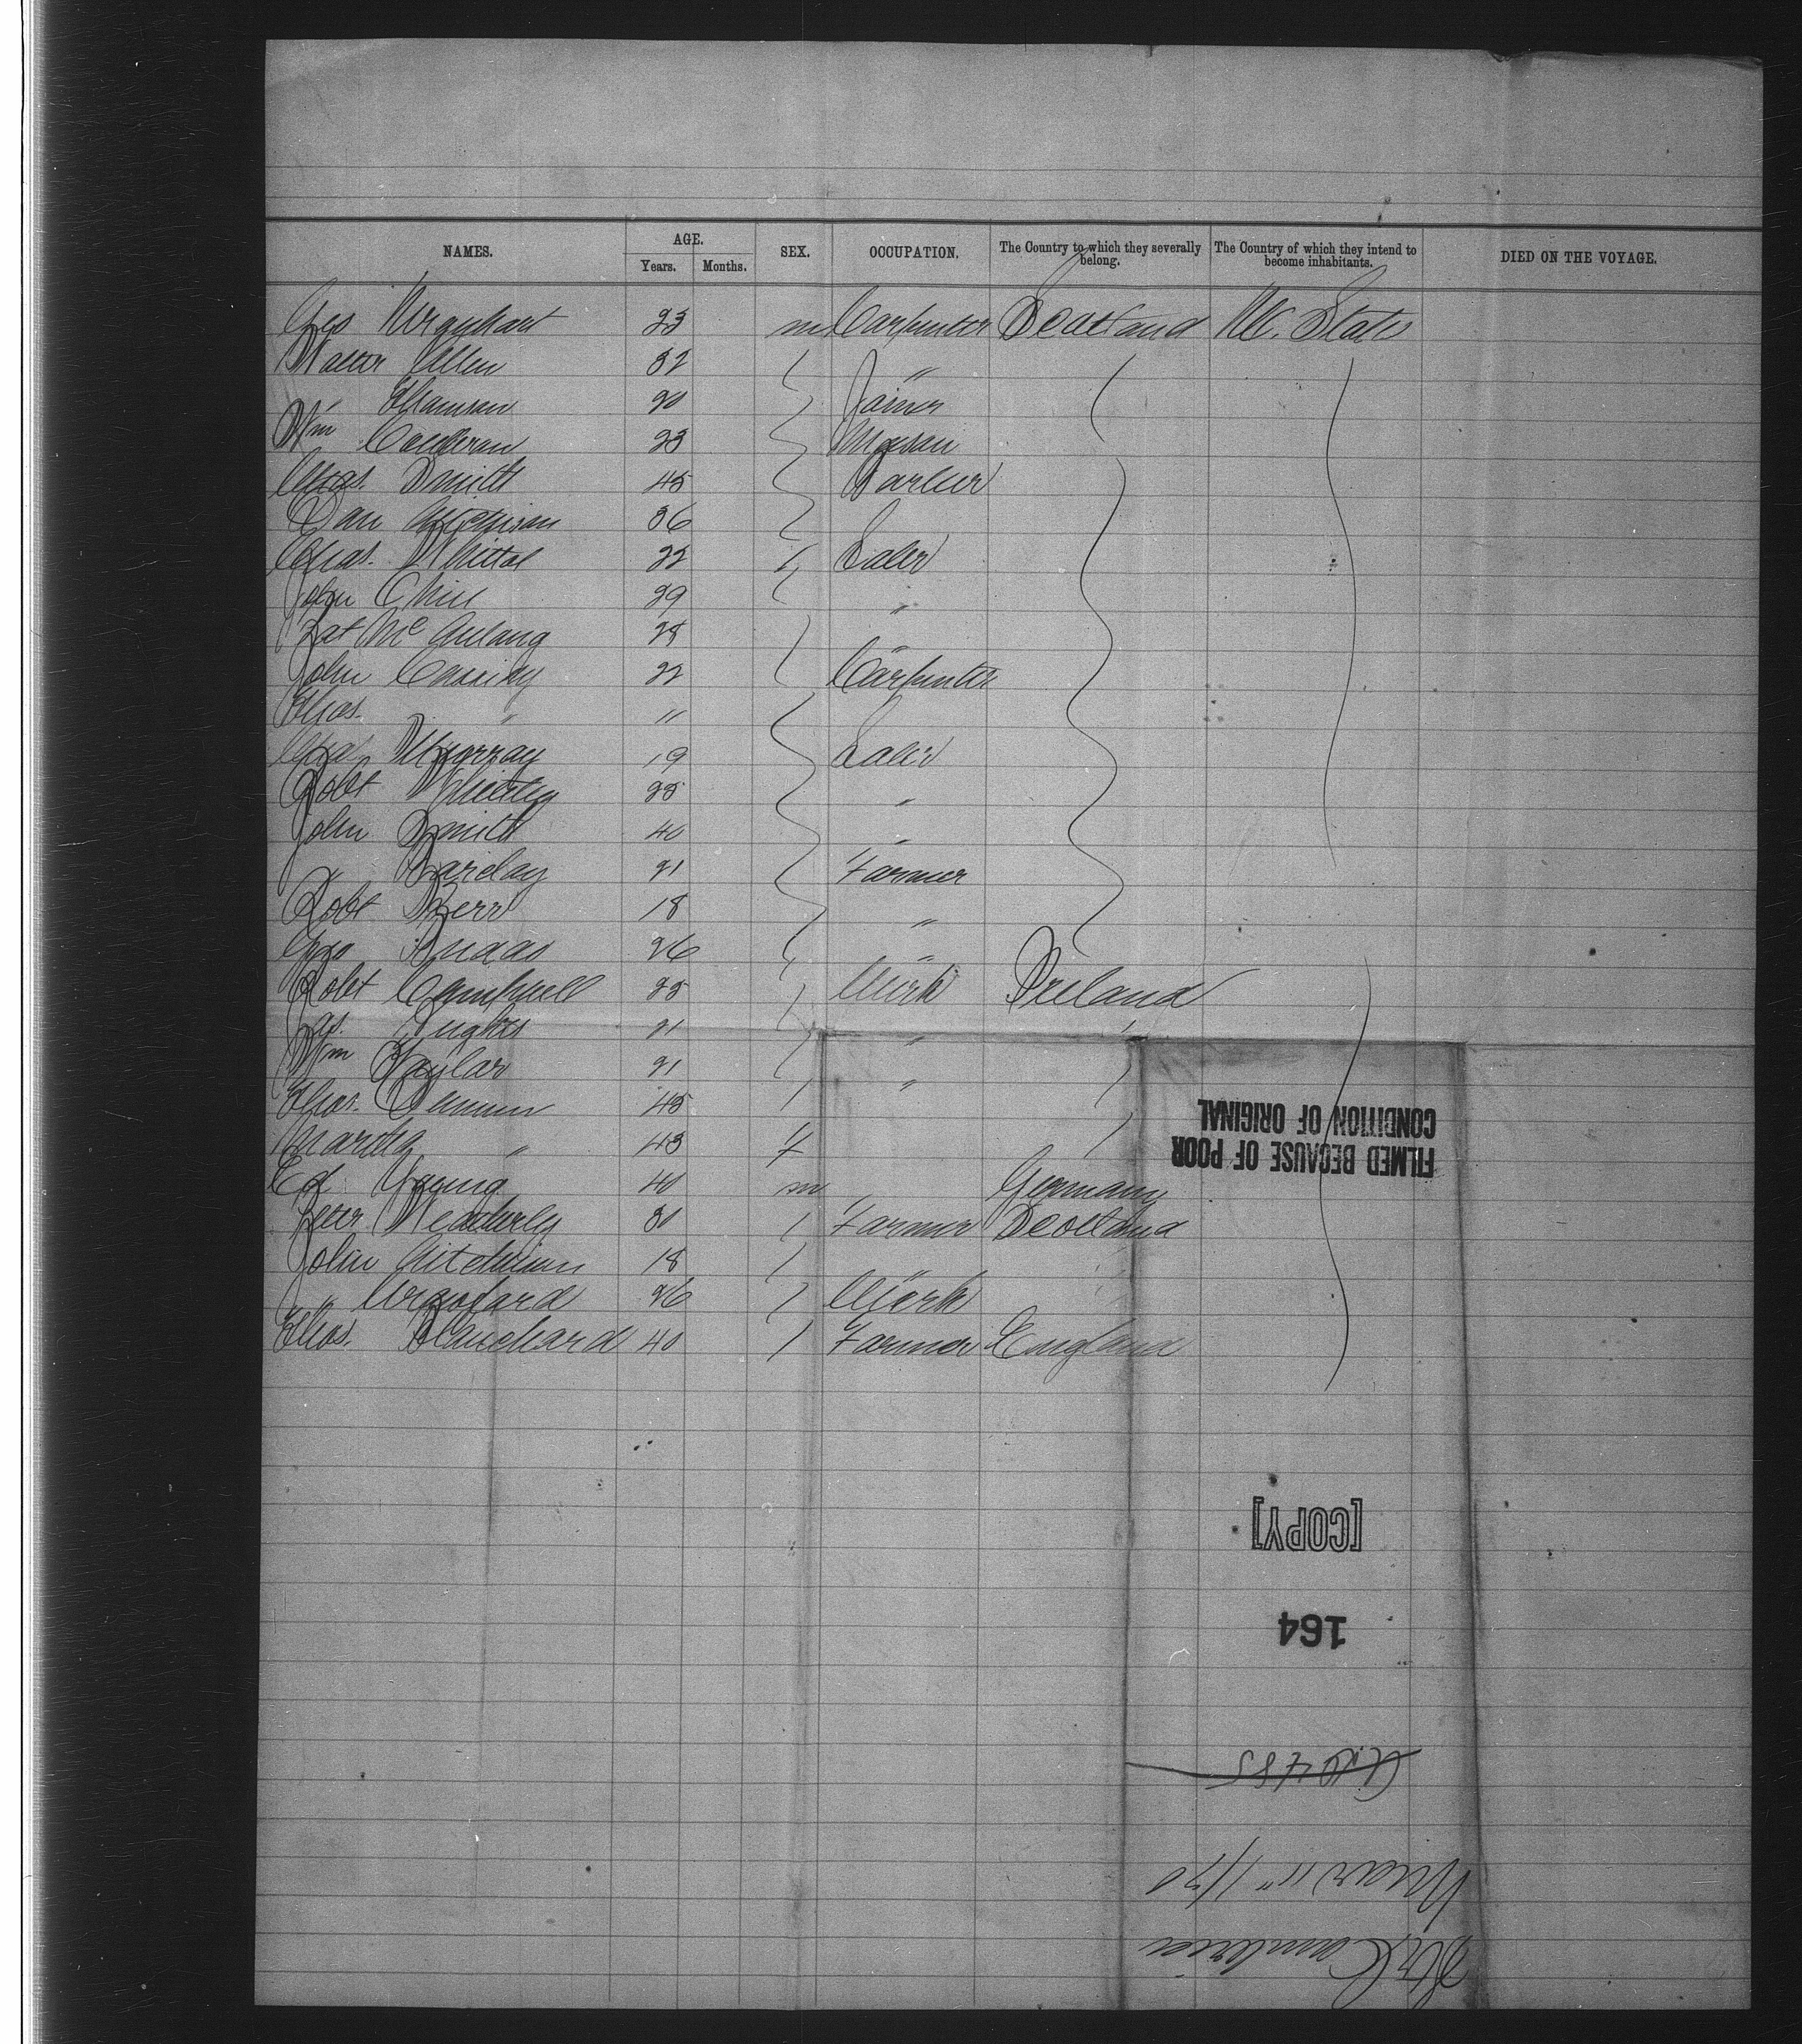 NAMES. AGE. SEX. OCCUPATION. The Country to which they severally belong. The Country of which they intend to become inhabitants. DIED ON THE VOYAGE.
Years. Months.
Geo Urquhart 23 m Carpenter Scotland U. States
Walter Allen 32 "
" Thomson 20 Joiner
Wm Calderon 23 Mason
Chas. Smith 45
Dan 36
Chas. Whittal 22 Labr
John O'Neil 29 "
Pat Mc 28 "
John 22 Carpenter
Thos. " "
Murray 19 Labr
Robt 25 "
John Smith 40 "
" Barclay 21 Farmer
Robt Kerr 18 "
Geo 26 "
Robt Campbell 25 Clerk Ireland
Jas. Hughes 21 " "
Wm Taylor 21 "
Thos. 45
Martha " 43 f
Ed Young 40 m Germany
Peter Weatherly 30 Farmer Scotland
John 18 " "
" Crawford 26 Clerk "
Thos. Blanchard 40 Farmer England
FILMED BECAUSE OF POOR
CONDITION OF ORIGINAL
[COPY]
164
485
Mar 11" 1/70
Str Cambria